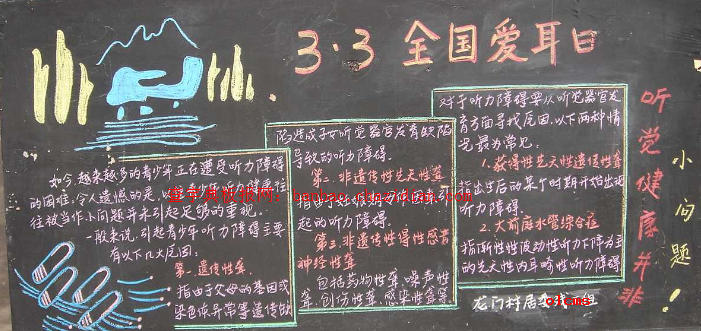 3·3 全国爱耳日
如今,越来越多的青少年正在遭受听力障碍
的困难,令人遗憾的是,以
往被当作小问题并未引起足够的重视。
一般来说,引起青少年听力障碍主要
有以下几大原因。
第一.遗传性聋.
指由于父母的基因或
染色体异常等遗传缺
陷造成子女听觉器官发育缺陷
导致的听力障碍.
第二.非遗传性先天性聋
起的听力障碍.
第三.非遗传性得性感音
神经性聋
包括药物性聋、噪声性
聋、创伤性聋、感染性聋等.
对于听力障碍要从听觉器官发
育方面寻找原因.以下两种情
况最为常见:
1.获得性先天性遗传性聋
指出生后的某个时期开始出现
听力障碍.
2.大前庭水管综合症
指渐进性波动性听力下降为主
的先天性内耳畸性听力障碍
听觉健康并非
小问题!
龙门村居